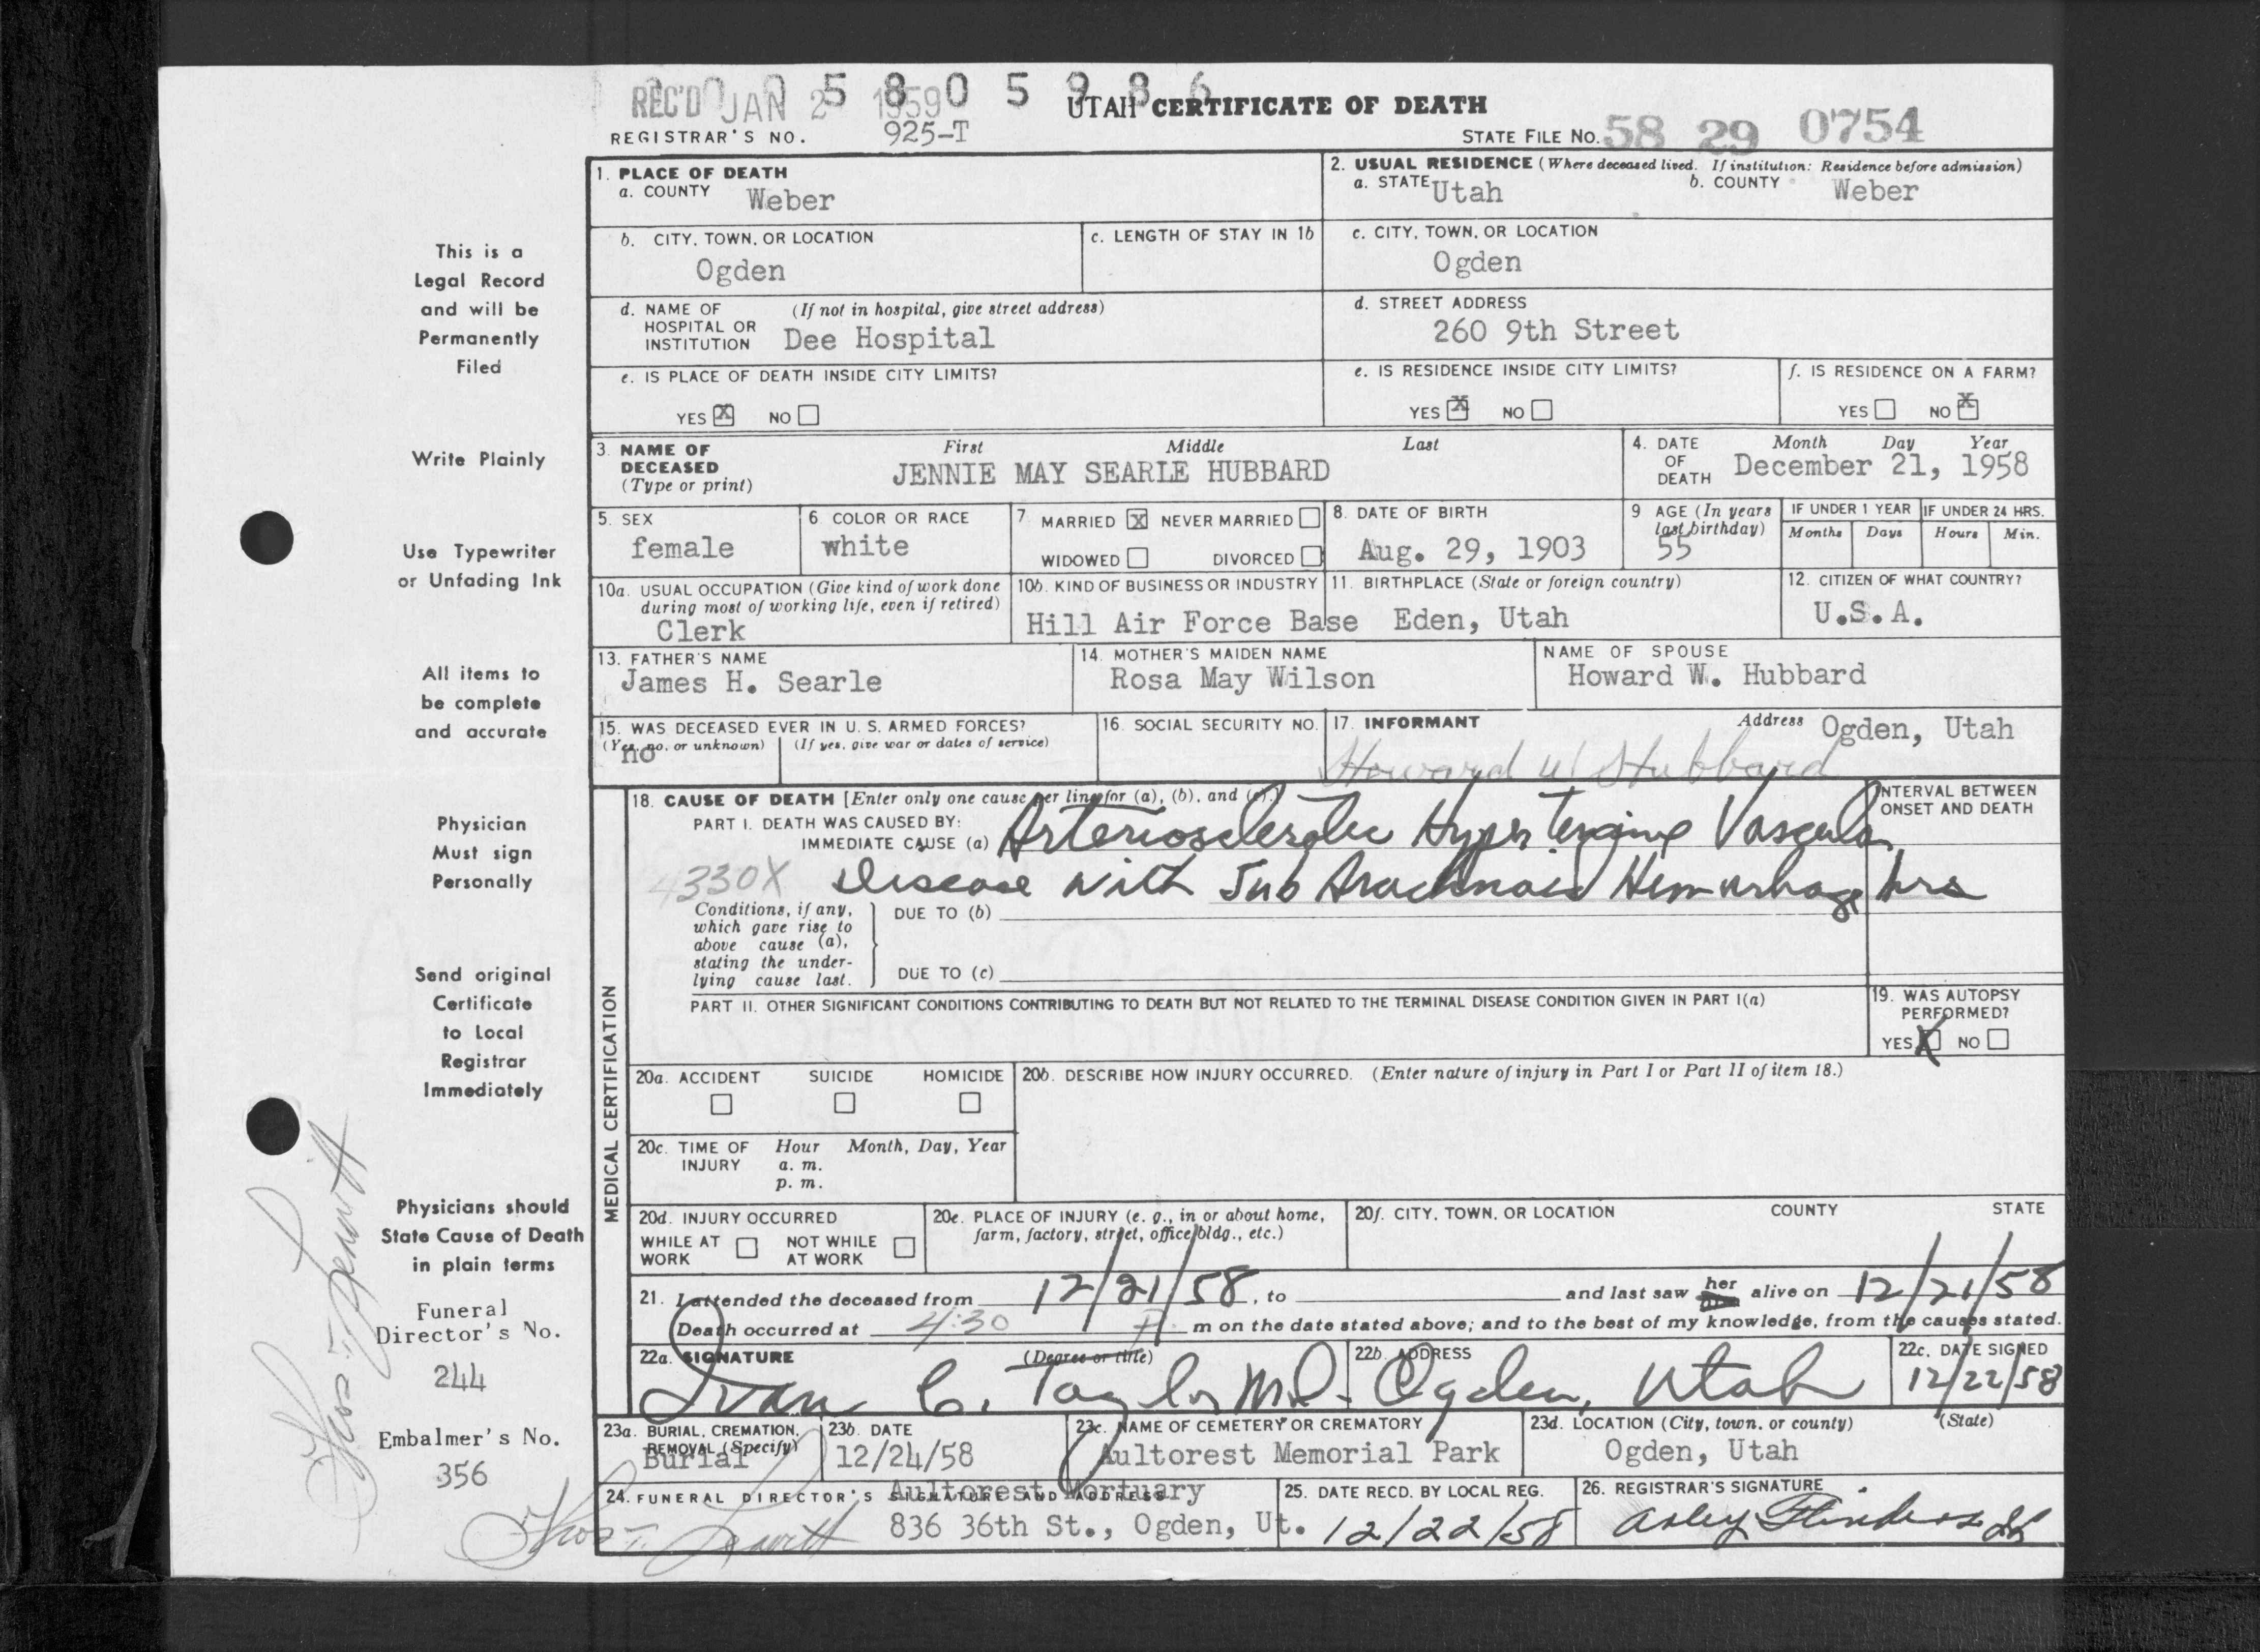 REC'D JAN 2 1959
0 0 5 8 0 5 9 8 6
UTAH CERTIFICATE OF DEATH
REGISTRAR'S NO. 925-T
STATE FILE NO. 58 29 0754
1. PLACE OF DEATH
a. COUNTY Weber
2. USUAL RESIDENCE (Where deceased lived. If institution: Residence before admission)
a. STATE Utah b. COUNTY Weber
b. CITY, TOWN, OR LOCATION
Ogden
c. LENGTH OF STAY IN 1b
c. CITY, TOWN, OR LOCATION
Ogden
d. NAME OF HOSPITAL OR INSTITUTION (If not in hospital, give street address)
Dee Hospital
d. STREET ADDRESS
260 9th Street
e. IS PLACE OF DEATH INSIDE CITY LIMITS?
YES X NO
e. IS RESIDENCE INSIDE CITY LIMITS?
YES X NO
f. IS RESIDENCE ON A FARM?
YES NO X
3. NAME OF DECEASED (Type or print) First Middle Last
JENNIE MAY SEARLE HUBBARD
4. DATE OF DEATH Month Day Year
December 21, 1958
5. SEX
female
6 COLOR OR RACE
white
7. MARRIED X NEVER MARRIED
WIDOWED DIVORCED
8. DATE OF BIRTH
Aug. 29, 1903
9 AGE (In years last birthday)
55
IF UNDER 1 YEAR IF UNDER 24 HRS.
Months Days Hours Min.
10a. USUAL OCCUPATION (Give kind of work done during most of working life, even if retired)
Clerk
10b. KIND OF BUSINESS OR INDUSTRY
Hill Air Force Base
11. BIRTHPLACE (State or foreign country)
Eden, Utah
12. CITIZEN OF WHAT COUNTRY?
U.S.A.
13. FATHER'S NAME
James H. Searle
14. MOTHER'S MAIDEN NAME
Rosa May Wilson
NAME OF SPOUSE
Howard W. Hubbard
15. WAS DECEASED EVER IN U. S. ARMED FORCES?
(Yes, no, or unknown) (If yes, give war or dates of service)
no
16. SOCIAL SECURITY NO.
17. INFORMANT Address Ogden, Utah
Howard W Hubbard
MEDICAL CERTIFICATION
18. CAUSE OF DEATH [Enter only one cause per line for (a), (b), and (c).]
INTERVAL BETWEEN ONSET AND DEATH
PART I. DEATH WAS CAUSED BY:
IMMEDIATE CAUSE (a) Arteriosclerotic Hypertensive Vascular
330X Disease with Sub Arachnoid Hemorrhage hrs
Conditions, if any, which gave rise to above cause (a), stating the underlying cause last.
DUE TO (b)
DUE TO (c)
PART II. OTHER SIGNIFICANT CONDITIONS CONTRIBUTING TO DEATH BUT NOT RELATED TO THE TERMINAL DISEASE CONDITION GIVEN IN PART I(a)
19. WAS AUTOPSY PERFORMED?
YES X NO
20a. ACCIDENT SUICIDE HOMICIDE
20b. DESCRIBE HOW INJURY OCCURRED. (Enter nature of injury in Part I or Part II of item 18.)
20c. TIME OF INJURY Hour Month, Day, Year
a. m.
p. m.
20d. INJURY OCCURRED
WHILE AT WORK NOT WHILE AT WORK
20e. PLACE OF INJURY (e. g., in or about home, farm, factory, street, office bldg., etc.)
20f. CITY, TOWN, OR LOCATION COUNTY STATE
21. I attended the deceased from 12/21/58, to and last saw her alive on 12/21/58
Death occurred at 4:30 P. m on the date stated above; and to the best of my knowledge, from the causes stated.
22a. SIGNATURE (Degree or title)
Ivan C. Taylor M.D.
22b. ADDRESS
Ogden, Utah
22c. DATE SIGNED
12/22/58
23a. BURIAL, CREMATION, REMOVAL (Specify)
Burial
23b. DATE
12/24/58
23c. NAME OF CEMETERY OR CREMATORY
Aultorest Memorial Park
23d. LOCATION (City, town, or county) (State)
Ogden, Utah
24. FUNERAL DIRECTOR'S SIGNATURE AND ADDRESS
Aultorest Mortuary
836 36th St., Ogden, Ut.
25. DATE RECD. BY LOCAL REG.
12/22/58
26. REGISTRAR'S SIGNATURE
This is a
Legal Record
and will be
Permanently
Filed
Write Plainly
Use Typewriter
or Unfading Ink
All items to
be complete
and accurate
Physician
Must sign
Personally
Send original
Certificate
to Local
Registrar
Immediately
Physicians should
State Cause of Death
in plain terms
Funeral
Director's No.
244
Embalmer's No.
356